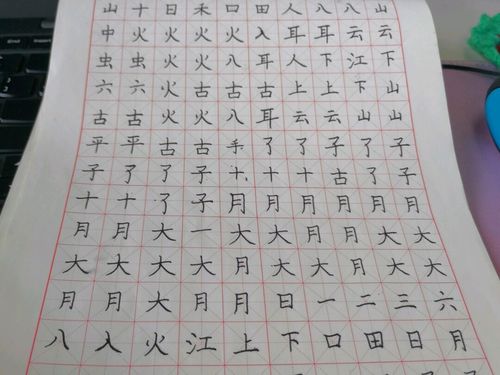 山十日禾口田人八八山
中火火火火入耳耳云云
虫虫火火八耳人下江下
六六火古古古上上下山
古古火火八耳云云山山
平平古古手了了子了子
子了了子十十十古了了
十十了子月月月月月月
月月大一大大月月大大
大大大大月大大月大大
月月大月月日一二三六
八入火江上下口田日月